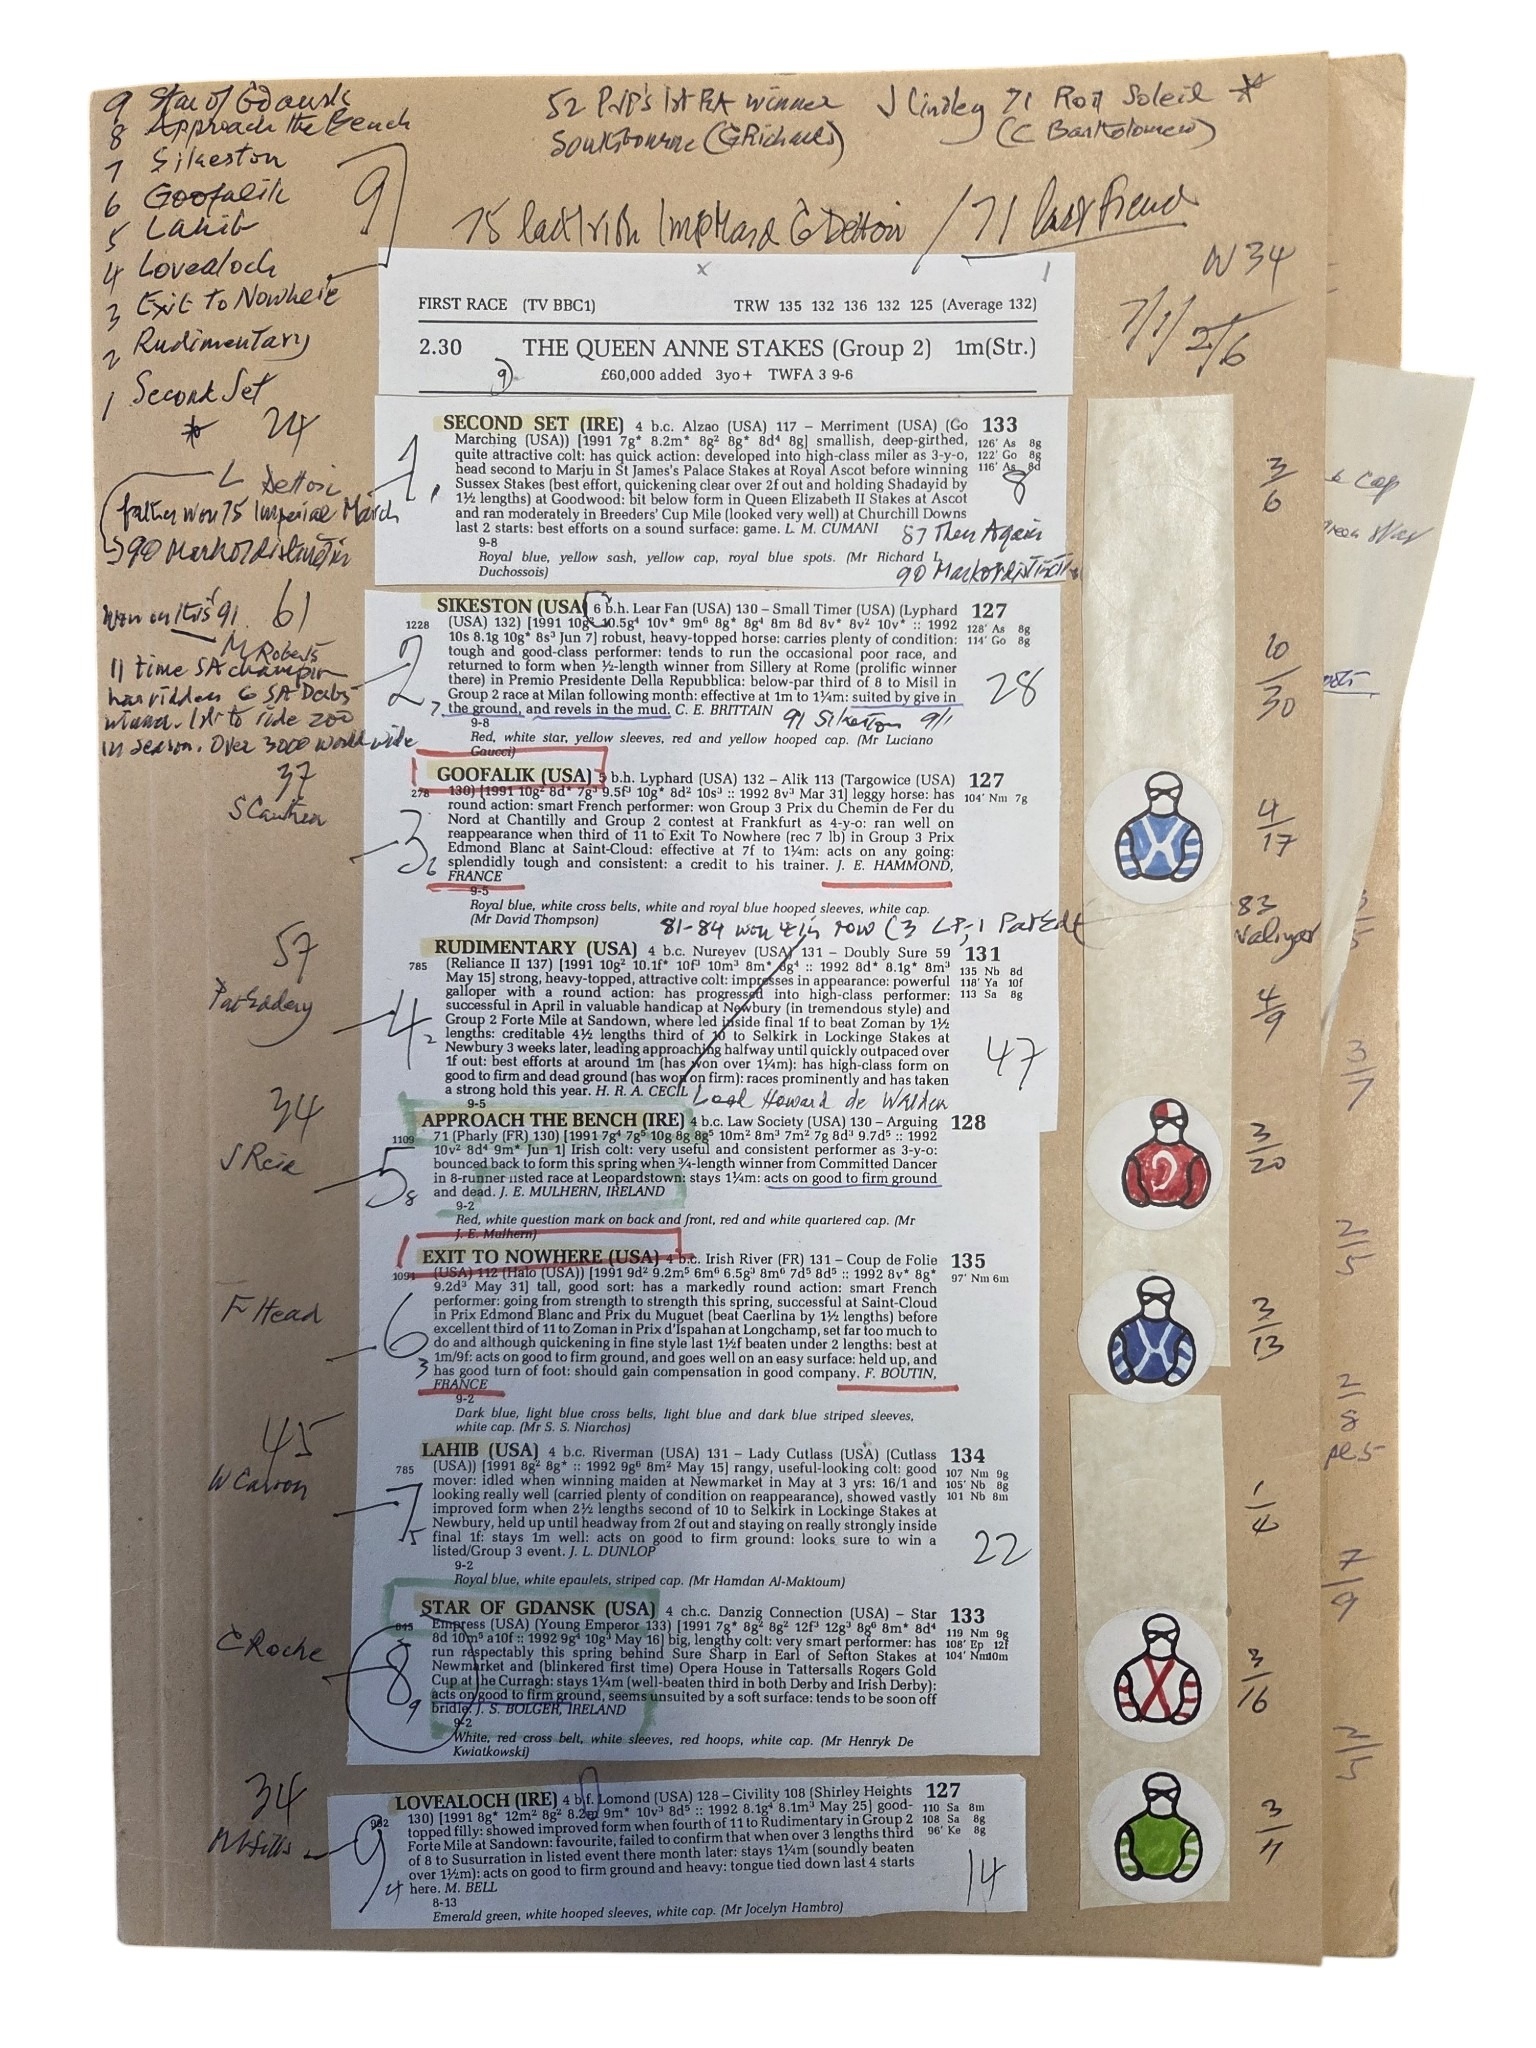 9 Star of Gdansk
8 Approach the Bench
7 Sikeston
6 Goofalik
5 Lahib
4 Lovealoch
3 Exit to Nowhere
2 Rudimentary
1 Second Set
* 24
9
52 1st winner J Lindley 71 Roi Soleil *
Southbourne (G Richards) (C Bartholomew)
75 G Dettori / 71 last French
W 34
7/1/2/6
x 1
FIRST RACE (TV BBC1) TRW 135 132 136 132 125 (Average 132)
2.30 THE QUEEN ANNE STAKES (Group 2) 1m(Str.)
9) £60,000 added 3yo+ TWFA 3 9-6
L Dettori
father won 75 Imperial March
90 Mark of distinction
1 1
SECOND SET (IRE) 4 b.c. Alzao (USA) 117 – Merriment (USA) (Go 133
Marching (USA)) [1991 7g* 8.2m* 8g² 8g* 8d⁴ 8g] smallish, deep-girthed, 126' As 8g
quite attractive colt: has quick action: developed into high-class miler as 3-y-o, 122' Go 8g
head second to Marju in St James's Palace Stakes at Royal Ascot before winning 116' As 8d
Sussex Stakes (best effort, quickening clear over 2f out and holding Shadayid by 8
1½ lengths) at Goodwood: bit below form in Queen Elizabeth II Stakes at Ascot
and ran moderately in Breeders' Cup Mile (looked very well) at Churchill Downs
last 2 starts: best efforts on a sound surface: game. L. M. CUMANI 87 Then Again
9-8
Royal blue, yellow sash, yellow cap, royal blue spots. (Mr Richard L.
Duchossois) 90 Mark of distinction
3/6
won on this 91 61
M Roberts
11 time SA champion
has ridden 6 SA Derby
winners. 1st to ride 200
in season. Over 3000 worldwide
2 7
SIKESTON (USA) 6 b.h. Lear Fan (USA) 130 – Small Timer (USA) (Lyphard 127
1228 (USA) 132) [1991 10g² 10.5g⁴ 10v* 9m⁶ 8g* 8g⁴ 8m 8d 8v* 8v² 10v* :: 1992 128' As 8g
10s 8.1g 10g* 8s³ Jun 7] robust, heavy-topped horse: carries plenty of condition: 114' Go 8g
tough and good-class performer: tends to run the occasional poor race, and
returned to form when ½-length winner from Sillery at Rome (prolific winner
there) in Premio Presidente Della Repubblica: below-par third of 8 to Misil in
Group 2 race at Milan following month: effective at 1m to 1¼m: suited by give in 28
the ground, and revels in the mud. C. E. BRITTAIN 91 Sikeston 9/1
9-8
Red, white star, yellow sleeves, red and yellow hooped cap. (Mr Luciano
Gaucci)
10/30
37
S Cauthen
3 6
GOOFALIK (USA) 5 b.h. Lyphard (USA) 132 – Alik 113 (Targowice (USA) 127
278 130) [1991 10g² 8d* 7g³ 9.5f³ 10g* 8d² 10s³ :: 1992 8v³ Mar 31] leggy horse: has 104' Nm 7g
round action: smart French performer: won Group 3 Prix du Chemin de Fer du
Nord at Chantilly and Group 2 contest at Frankfurt as 4-y-o: ran well on
reappearance when third of 11 to Exit To Nowhere (rec 7 lb) in Group 3 Prix
Edmond Blanc at Saint-Cloud: effective at 7f to 1¼m: acts on any going:
splendidly tough and consistent: a credit to his trainer. J. E. HAMMOND,
FRANCE
9-5
Royal blue, white cross belts, white and royal blue hooped sleeves, white cap.
(Mr David Thompson) 81-84 won 4 in row (3 LP, 1 Pat Edd
4/17
83
57
Pat Eddery
4 2
RUDIMENTARY (USA) 4 b.c. Nureyev (USA) 131 – Doubly Sure 59 131
785 (Reliance II 137) [1991 10g² 10.1f* 10f³ 10m³ 8m* 8g⁴ :: 1992 8d* 8.1g* 8m³ 135 Nb 8d
May 15] strong, heavy-topped, attractive colt: impresses in appearance: powerful 118' Ya 10f
galloper with a round action: has progressed into high-class performer: 113 Sa 8g
successful in April in valuable handicap at Newbury (in tremendous style) and
Group 2 Forte Mile at Sandown, where led inside final 1f to beat Zoman by 1½
lengths: creditable 4½ lengths third of 10 to Selkirk in Lockinge Stakes at
Newbury 3 weeks later, leading approaching halfway until quickly outpaced over 47
1f out: best efforts at around 1m (has won over 1¼m): has high-class form on
good to firm and dead ground (has won on firm): races prominently and has taken
a strong hold this year. H. R. A. CECIL Lord Howard de Walden
9-5
4/9
34
J Reid
5 8
APPROACH THE BENCH (IRE) 4 b.c. Law Society (USA) 130 – Arguing 128
1109 71 (Pharly (FR) 130) [1991 7g⁴ 7g⁵ 10g 8g 8g⁵ 10m² 8m³ 7m² 7g 8d³ 9.7d⁵ :: 1992
10v² 8d⁴ 9m* Jun 1] Irish colt: very useful and consistent performer as 3-y-o:
bounced back to form this spring when ¾-length winner from Committed Dancer
in 8-runner listed race at Leopardstown: stays 1¼m: acts on good to firm ground
and dead. J. E. MULHERN, IRELAND
9-2
Red, white question mark on back and front, red and white quartered cap. (Mr
J. E. Mulhern)
3/20
F Head
6 3
EXIT TO NOWHERE (USA) 4 b.c. Irish River (FR) 131 – Coup de Folie 135
1094 (USA) 112 (Halo (USA)) [1991 9d² 9.2m⁵ 6m⁶ 6.5g³ 8m⁶ 7d⁵ 8d⁵ :: 1992 8v* 8g* 97' Nm 6m
9.2d³ May 31] tall, good sort: has a markedly round action: smart French
performer: going from strength to strength this spring, successful at Saint-Cloud
in Prix Edmond Blanc and Prix du Muguet (beat Caerlina by 1½ lengths) before
excellent third of 11 to Zoman in Prix d'Ispahan at Longchamp, set far too much to
do and although quickening in fine style last 1½f beaten under 2 lengths: best at
1m/9f: acts on good to firm ground, and goes well on an easy surface: held up, and
has good turn of foot: should gain compensation in good company. F. BOUTIN,
FRANCE
9-2
Dark blue, light blue cross belts, light blue and dark blue striped sleeves,
white cap. (Mr S. S. Niarchos)
3/13
45
W Carson
7 5
LAHIB (USA) 4 b.c. Riverman (USA) 131 – Lady Cutlass (USA) (Cutlass 134
785 (USA)) [1991 8g² 8g* :: 1992 9g⁶ 8m² May 15] rangy, useful-looking colt: good 107 Nm 9g
mover: idled when winning maiden at Newmarket in May at 3 yrs: 16/1 and 105' Nb 8g
looking really well (carried plenty of condition on reappearance), showed vastly 101 Nb 8m
improved form when 2½ lengths second of 10 to Selkirk in Lockinge Stakes at
Newbury, held up until headway from 2f out and staying on really strongly inside
final 1f: stays 1m well: acts on good to firm ground: looks sure to win a 22
listed/Group 3 event. J. L. DUNLOP
9-2
Royal blue, white epaulets, striped cap. (Mr Hamdan Al-Maktoum)
1/4
C Roche
8 9
STAR OF GDANSK (USA) 4 ch.c. Danzig Connection (USA) – Star 133
845 Empress (USA) (Young Emperor 133) [1991 7g* 8g² 8g² 12f³ 12g³ 8g⁶ 8m* 8d⁴ 119 Nm 9g
8d 10m⁵ a10f :: 1992 9g⁴ 10g³ May 16] big, lengthy colt: very smart performer: has 108' Ep 12f
run respectably this spring behind Sure Sharp in Earl of Sefton Stakes at 104' Nm10m
Newmarket and (blinkered first time) Opera House in Tattersalls Rogers Gold
Cup at the Curragh: stays 1¼m (well-beaten third in both Derby and Irish Derby):
acts on good to firm ground, seems unsuited by a soft surface: tends to be soon off
bridle. J. S. BOLGER, IRELAND
9-2
White, red cross belt, white sleeves, red hoops, white cap. (Mr Henryk De
Kwiatkowski)
3/16
34
M Hills
9 4
LOVEALOCH (IRE) 4 b.f. Lomond (USA) 128 – Civility 108 (Shirley Heights 127
982 130) [1991 8g* 12m² 8g² 8.2m 9m* 10v³ 8d⁵ :: 1992 8.1g⁴ 8.1m³ May 25] good- 110 Sa 8m
topped filly: showed improved form when fourth of 11 to Rudimentary in Group 2 108 Sa 8g
Forte Mile at Sandown: favourite, failed to confirm that when over 3 lengths third 96' Ke 8g
of 8 to Susurration in listed event there month later: stays 1¼m (soundly beaten
over 1½m): acts on good to firm ground and heavy: tongue tied down last 4 starts 14
here. M. BELL
8-13
Emerald green, white hooped sleeves, white cap. (Mr Jocelyn Hambro)
Cap
3/7
2/5
2/8
pl.5
7/9
2/5